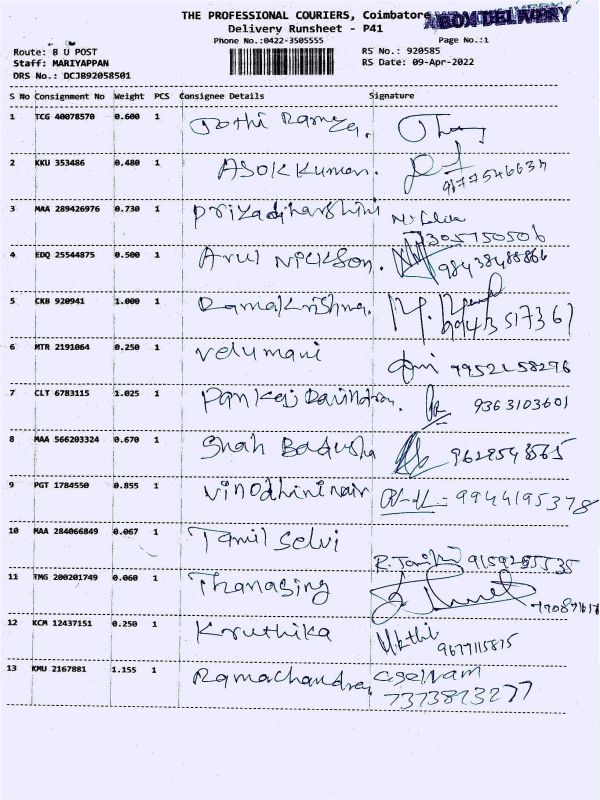 THE PROFESSIONAL COURIERS, Coimbatore
BOX DELIVERY
Delivery Runsheet - P41
Phone No.:0422-3505555
Page No.:1
Route: 8 U POST
RS No.: 920585
Staff: MARIYAPPAN
RS Date: 09-Apr-2022
DRS No.: DCJB92058501
S No Consignment No Weight PCS Consignee Details Signature
1 TCG 40078570 0.600 1 Jothi Ramya.
2 KKU 353486 0.480 1 Asok Kuman.
3 MAA 289426976 0.730 1 Priyadharshini
7305750506
4 EDQ 25544875 0.500 1 Arul Nickson.
5 CKB 920941 1.000 1 Ramakrishna.
9943517361
6 MTR 2191064 0.250 1 Velumani
9952158296
7 CLT 6783115 1.025 1 Pankaj Ravindran. 9363103601
8 MAA 566203324 0.670 1 Shah Badusha 9628548565
9 PGT 1784550 0.855 1 Vinodhini nair 9944195378
10 MAA 284066849 0.067 1 Tamil Selvi
9159255535
11 TMG 200201749 0.060 1 Thanasing
12 KCM 12437151 0.250 1 Kruthika
9677115815
13 KMU 2167881 1.155 1 Ramachandran C. Selvam
7373873277